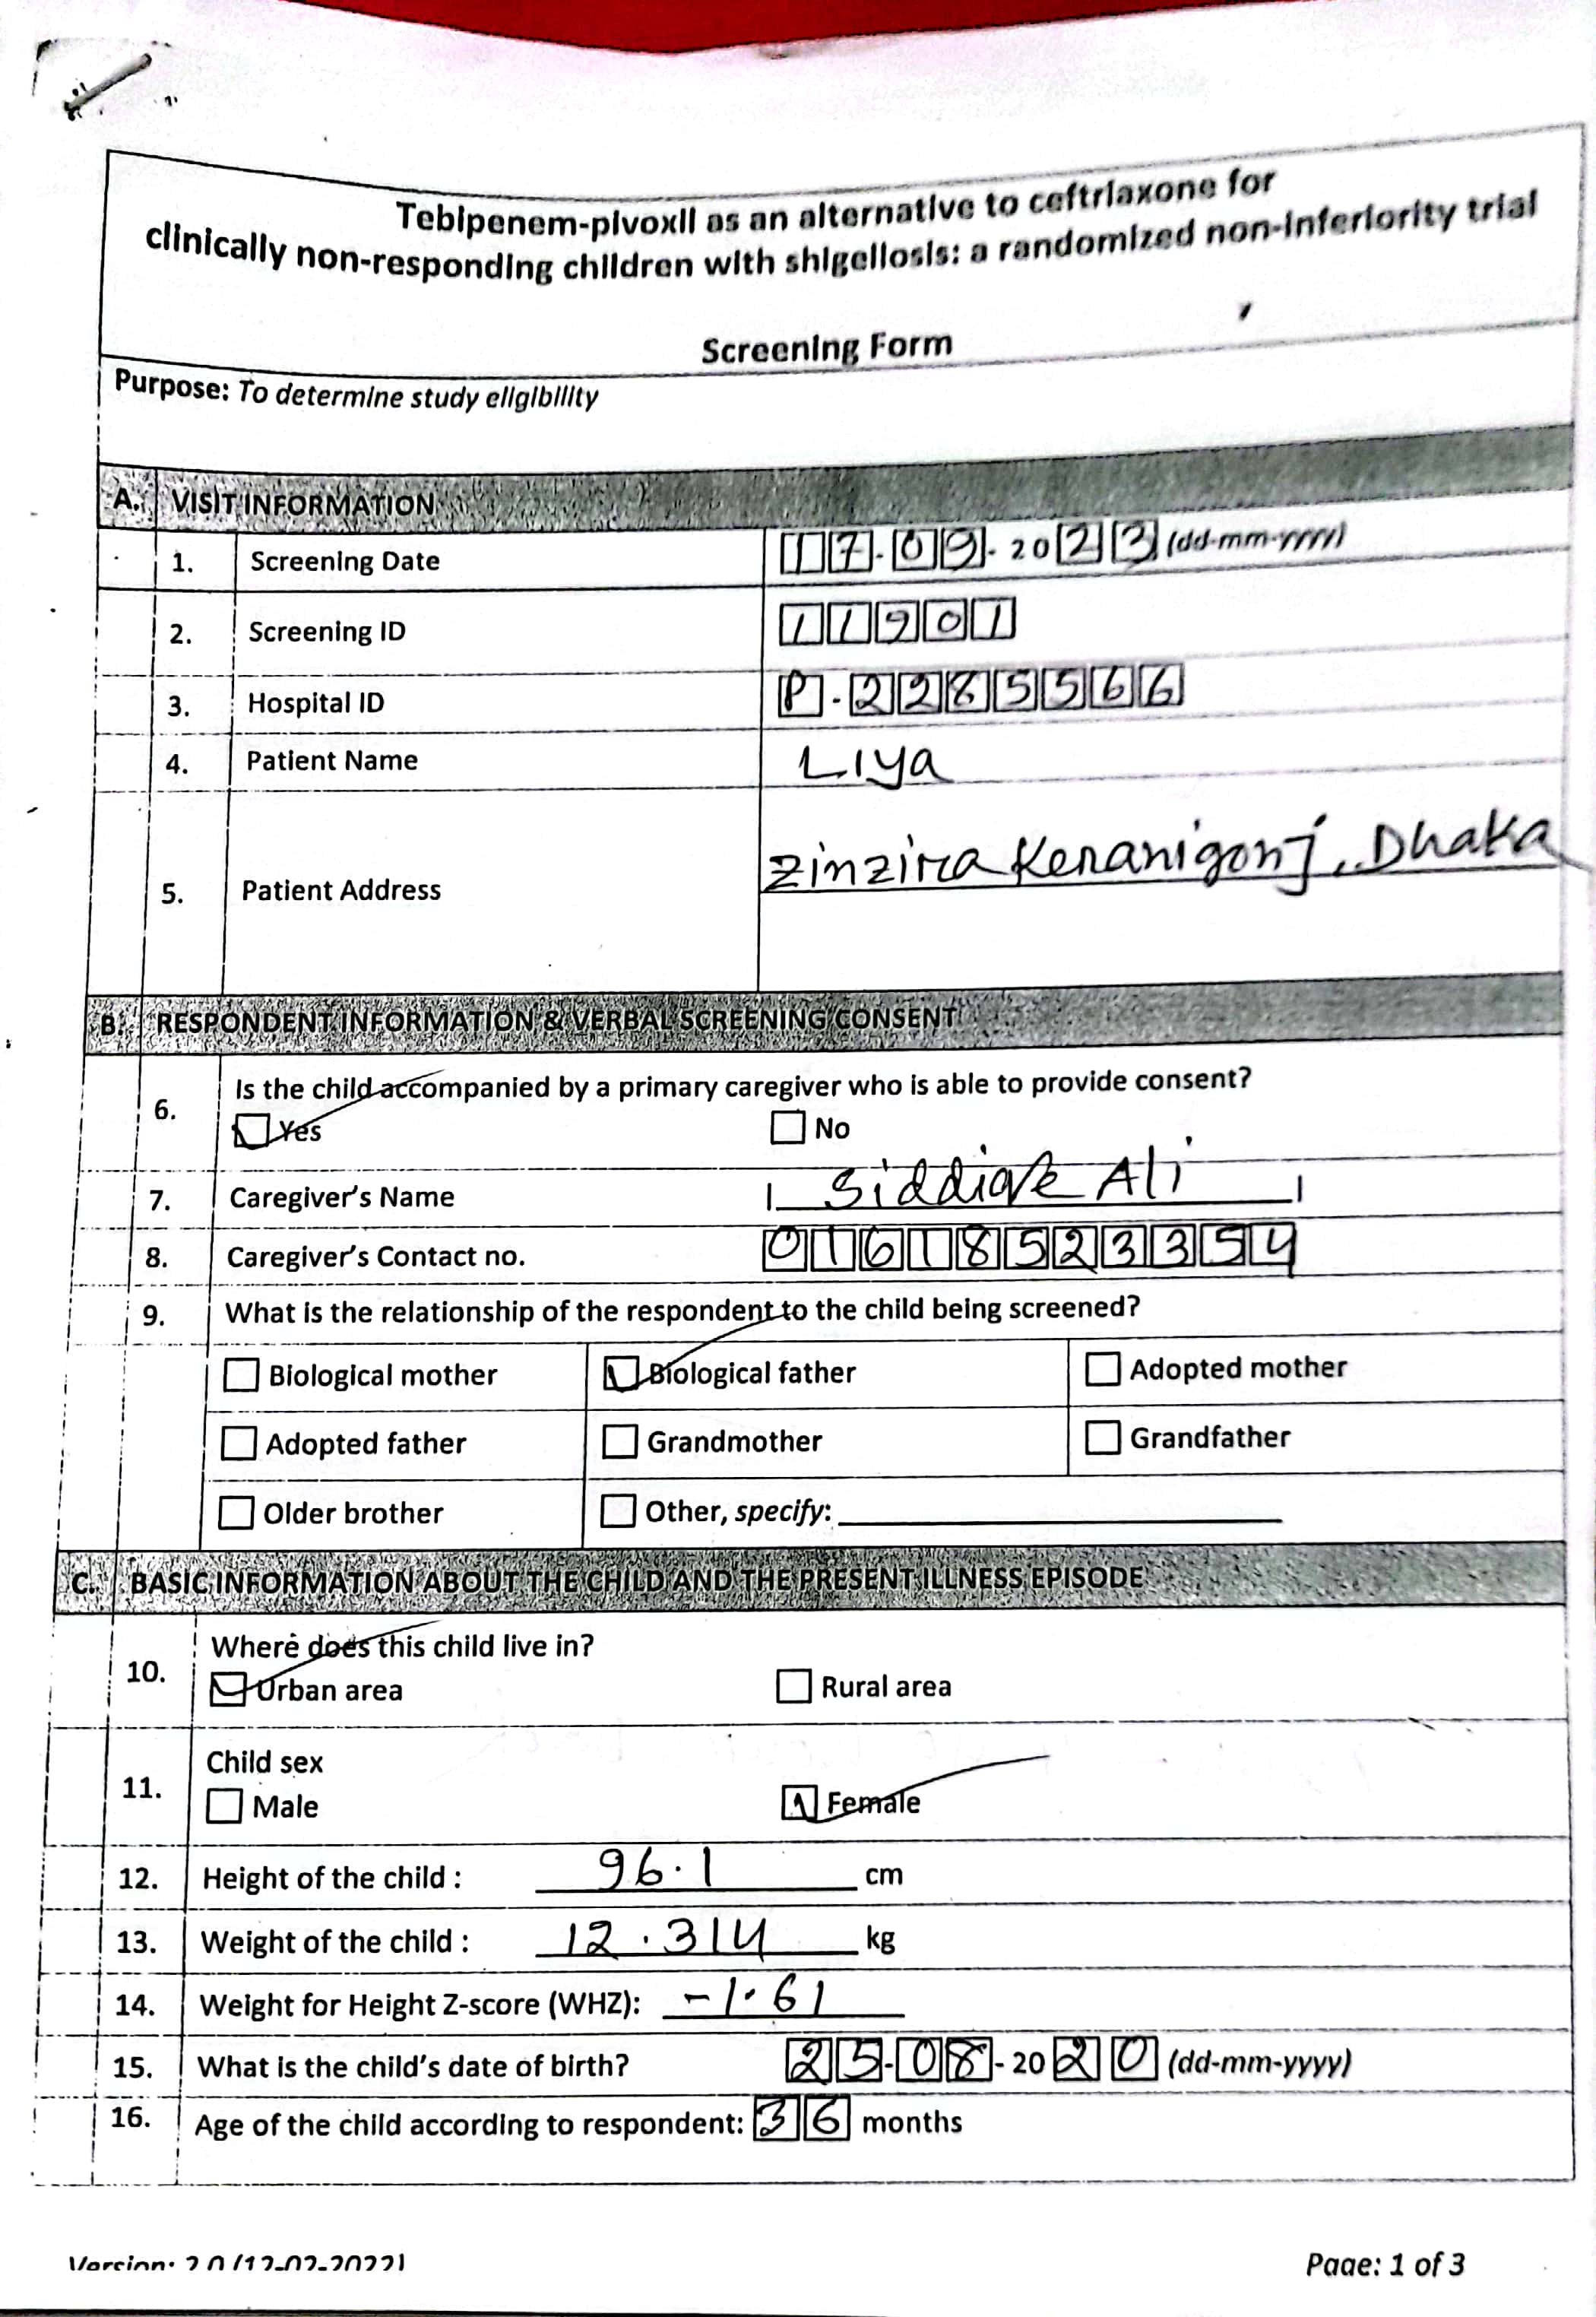 Tebipenem-pivoxil as an alternative to ceftriaxone for
clinically non-responding children with shigellosis: a randomized non-inferiority trial
Screening Form
Purpose: To determine study eligibility
A. VISIT INFORMATION
1. Screening Date 17-09-2023 (dd-mm-yyyy)
2. Screening ID 11901
3. Hospital ID P-2285566
4. Patient Name Liya
5. Patient Address Zinzira Keranigonj, Dhaka
B. RESPONDENT INFORMATION & VERBAL SCREENING CONSENT
6. Is the child accompanied by a primary caregiver who is able to provide consent?
Yes No
7. Caregiver's Name Siddiqve Ali
8. Caregiver's Contact no. 01618523354
9. What is the relationship of the respondent to the child being screened?
Biological mother Biological father Adopted mother
Adopted father Grandmother Grandfather
Older brother Other, specify:
C. BASIC INFORMATION ABOUT THE CHILD AND THE PRESENT ILLNESS EPISODE
10. Where does this child live in?
Urban area Rural area
11. Child sex
Male Female
12. Height of the child : 96.1 cm
13. Weight of the child : 12.314 kg
14. Weight for Height Z-score (WHZ): -1.61
15. What is the child's date of birth? 25-08-2020 (dd-mm-yyyy)
16. Age of the child according to respondent: 36 months
Version: 2.0 (12-02-2022)
Page: 1 of 3